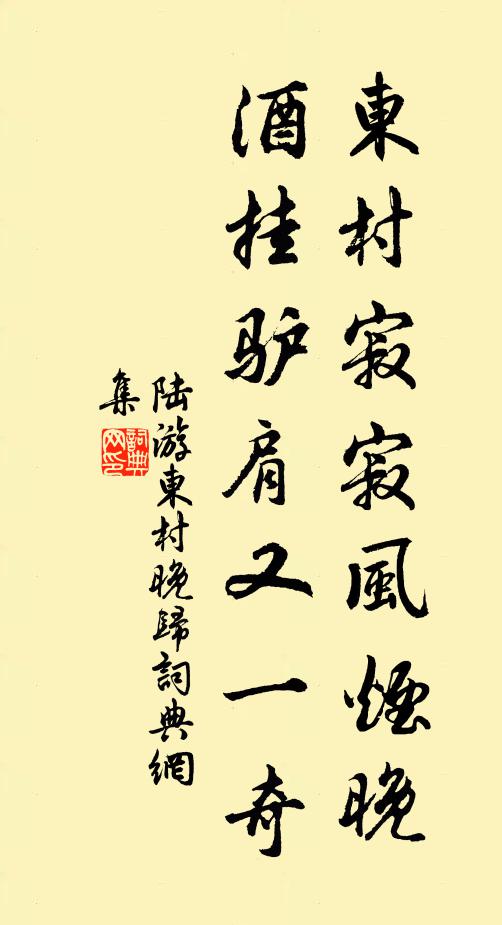 東村寂寂風煙晚
酒挂驴肩又一奇
陆游東村晚歸詞典網
集
詞典
网印